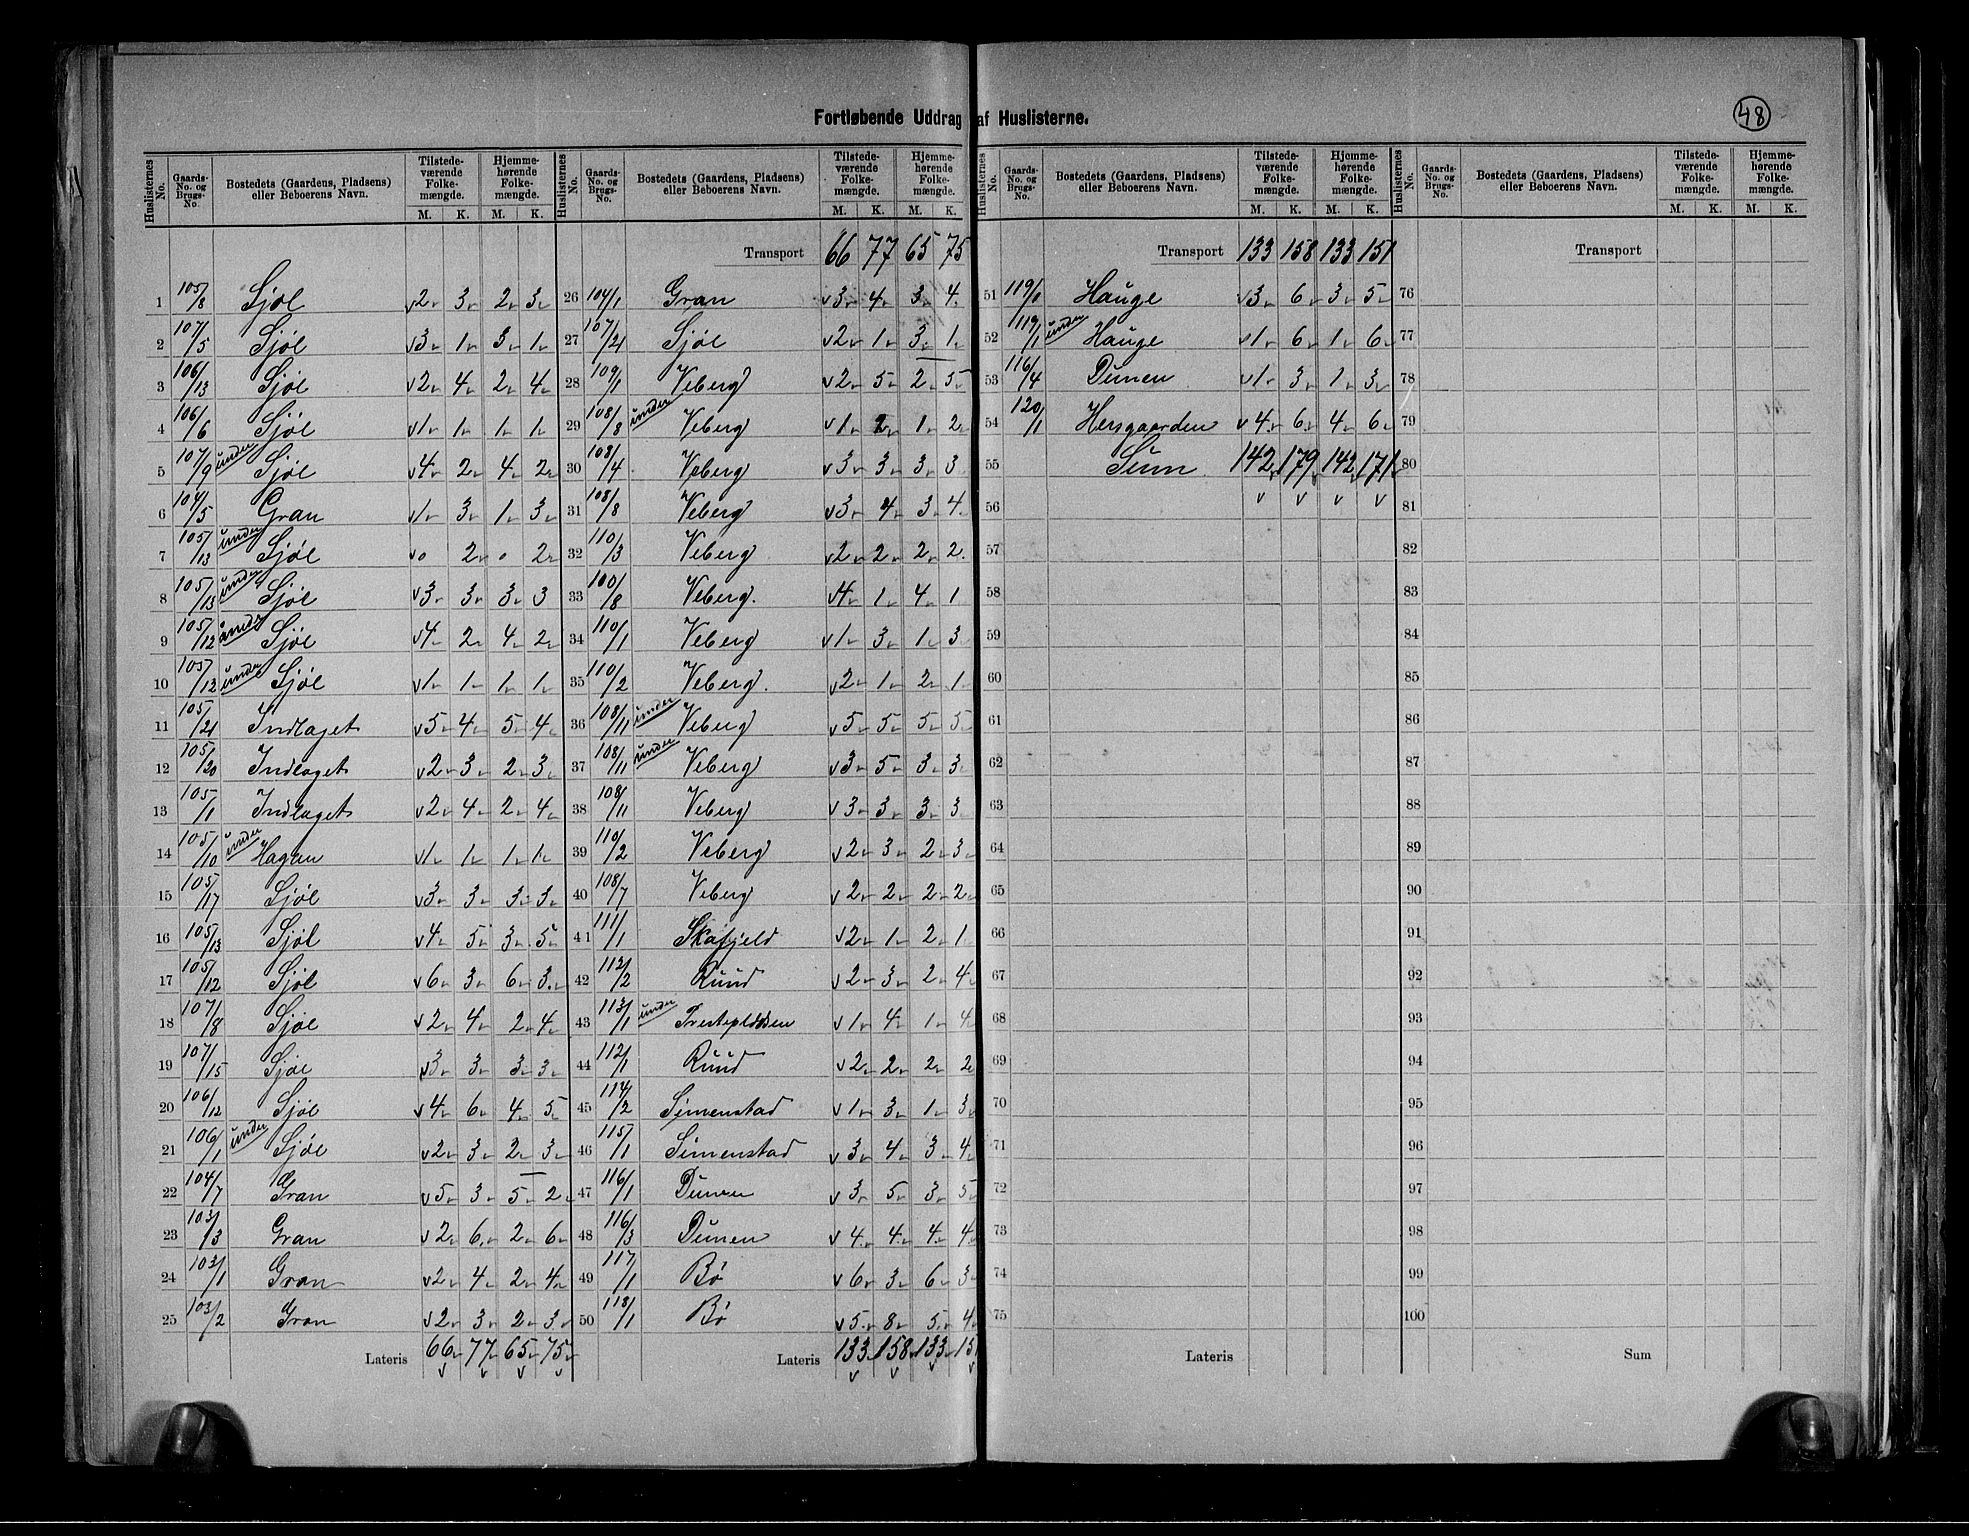 Fortløbende Uddrag af Huslisterne.
48
Huslisternes No. | Gaards-No. og Brugs-No. | Bostedets (Gaardens, Pladsens) eller Beboerens Navn. | Tilstedeværende Folkemængde. M. K. | Hjemmehørende Folkemængde. M. K.
1 105/8 Sjøl 2 3 2 3
2 107/5 Sjøl 3 1 3 1
3 106/13 Sjøl 2 4 2 4
4 106/6 Sjøl 1 1 1 1
5 107/9 under Sjøl 4 2 4 2
6 104/5 Gran 1 3 1 3
7 105/13 under Sjøl 0 2 0 2
8 105/13 under Sjøl 3 3 3 3
9 105/12 under Sjøl 4 2 4 2
10 105/12 under Sjøl 1 1 1 1
11 105/21 Indlaget 5 4 5 4
12 105/20 Indlaget 2 3 2 3
13 105/1 Indlaget 2 4 2 4
14 105/10 under Hagen 1 1 1 1
15 105/17 Sjøl 3 3 3 3
16 105/13 Sjøl 4 5 3 5
17 105/12 Sjøl 6 3 6 3
18 107/8 Sjøl 2 4 2 4
19 107/15 Sjøl 3 3 3 3
20 106/12 Sjøl 4 6 4 5
21 106/1 under Sjøl 2 3 2 3
22 104/7 Gran 5 3 5 2
23 103/3 Gran 2 6 2 6
24 103/1 Gran 2 4 2 4
25 103/2 Gran 2 3 2 3
Lateris 66 77 65 75
Huslisternes No. | Gaards-No. og Brugs-No. | Bostedets (Gaardens, Pladsens) eller Beboerens Navn. | Tilstedeværende Folkemængde. M. K. | Hjemmehørende Folkemængde. M. K.
Transport 66 77 65 75
26 104/1 Gran 3 4 3 4
27 107/21 Sjøl 2 1 3 1
28 109/1 Veberg 2 5 2 5
29 108/8 under Veberg 1 2 1 2
30 108/4 Veberg 3 3 3 3
31 108/8 Veberg 3 4 3 4
32 110/3 Veberg 2 2 2 2
33 100/8 Veberg. 4 1 4 1
34 110/1 Veberg 1 3 1 3
35 110/2 Veberg. 2 1 2 1
36 108/11 under Veberg 5 5 5 5
37 108/11 under Veberg 3 5 3 3
38 108/11 Veberg 3 3 3 3
39 110/2 Veberg 2 3 2 3
40 108/7 Veberg 2 2 2 2
41 111/1 Skafjeld 2 1 2 1
42 112/2 Ruud 2 3 2 4
43 113/1 under Prestepladsen 1 4 1 4
44 112/1 Ruud 2 2 2 2
45 114/2 Simenstad 1 3 1 3
46 115/1 Simenstad 3 4 3 4
47 116/1 Dumen 3 5 3 5
48 116/3 Dumen 4 4 4 4
49 117/1 Bø 6 3 6 3
50 118/1 Bø 5 8 5 4
Lateris 133 158 133 151
Huslisternes No. | Gaards-No. og Brugs-No. | Bostedets (Gaardens, Pladsens) eller Beboerens Navn. | Tilstedeværende Folkemængde. M. K. | Hjemmehørende Folkemængde. M. K.
Transport 133 158 133 151
51 119/1 Hauge 3 6 3 5
52 119/1 under Hauge 1 6 1 6
53 116/4 Dumen 1 3 1 3
54 120/1 Hersgaarden 4 6 4 6
55 Sum 142 179 142 171
56
57
58
59
60
61
62
63
64
65
66
67
68
69
70
71
72
73
74
75
Lateris
Huslisternes No. | Gaards-No. og Brugs-No. | Bostedets (Gaardens, Pladsens) eller Beboerens Navn. | Tilstedeværende Folkemængde. M. K. | Hjemmehørende Folkemængde. M. K.
Transport
76
77
78
79
80
81
82
83
84
85
86
87
88
89
90
91
92
93
94
95
96
97
98
99
100
Sum